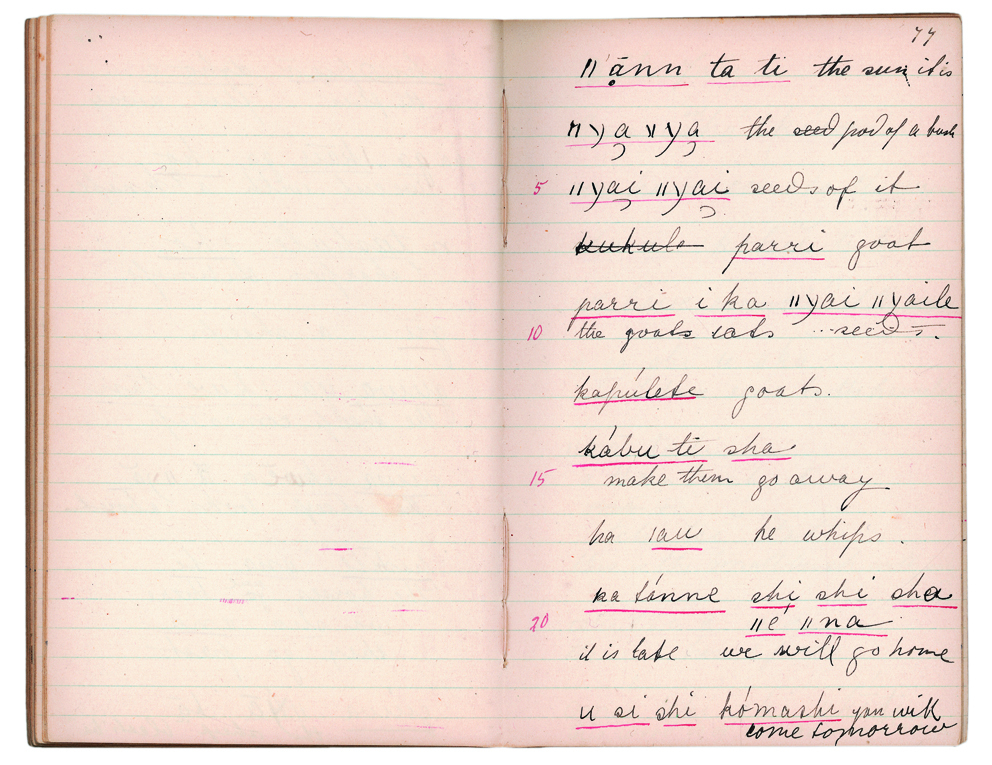 77
ǁ'ānn ta ti the sun it is
the ~~seed~~ pod of a bush
5 ǁyai ǁyai seeds of it
~~kukule~~ parri goat
parri i ka ǁyai ǁyaile
10 the goats eats seeds.
kapúlete goats.
kábu ti sha
15 make them go away
ha ǀau he whips.
ka tánne shi shi sha
20 ǁé ǁna
it is late we will go home
u si shi kómashi you will
come tomorrow